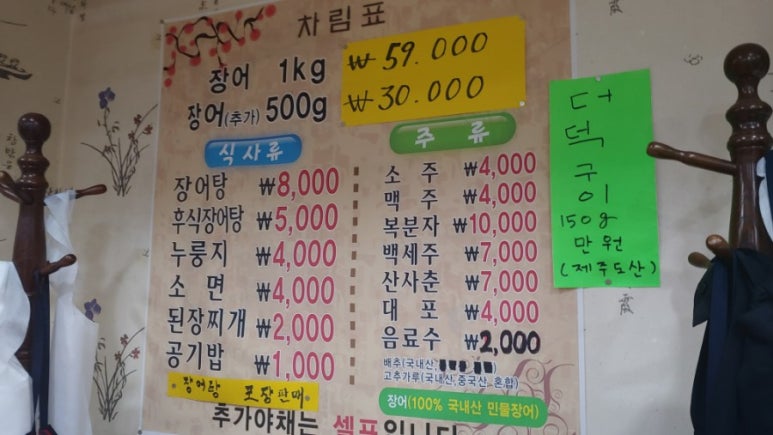 차림표
장어 1kg ₩59.000
장어(추가) 500g ₩30.000
식사류
장어탕 ₩8,000
후식장어탕 ₩5,000
누룽지 ₩4,000
소면 ₩4,000
된장찌개 ₩2,000
공기밥 ₩1,000
장어탕 포장판매
주류
소주 ₩4,000
맥주 ₩4,000
복분자 ₩10,000
백세주 ₩7,000
산사춘 ₩7,000
대포 ₩4,000
음료수 ₩2,000
배추(국내산,
고추가루(국내산,중국산, 혼합)
장어(100% 국내산 민물장어)
추가야채는 셀프입니다
더
덕
구
이
150g
만원
(제주도산)